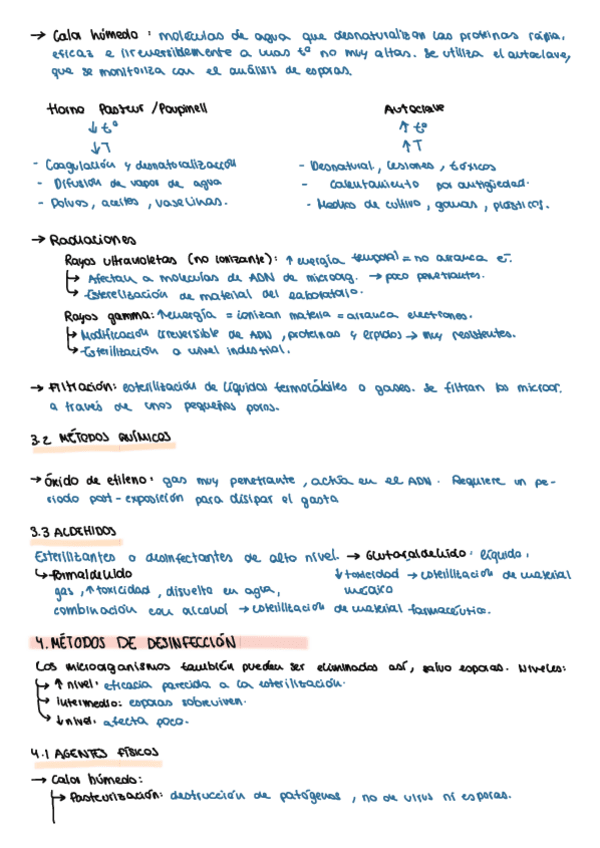 → Calor húmedo: moléculas de agua que desnaturalizan las proteínas rápida,
eficaz e irreversiblemente a unas tº no muy altas. Se utiliza el autoclave,
que se monitoriza con el análisis de esporas.
Horno Pasteur / Poupinell
↓ tº
↓ T
- Coagulación y desnaturalización
- Difusión de vapor de agua
- Polvos, aceites, vaselinas.
Autoclave
↑ tº
↑ T
- Desnatural, lesiones, tóxicos
- Calentamiento por antigüedad.
- Medios de cultivo, gomas, plásticos.
→ Radiaciones
Rayos ultravioletas (no ionizante): ↑ energía temporal = no arranca e⁻.
↳ Afectan a moléculas de ADN de microorg. → poco penetrantes.
↳ Esterilización de material del laboratorio.
Rayos gamma: ↑ energía = ionizan materia = arranca electrones.
↳ Modificación irreversible de ADN, proteínas y lípidos → muy resistentes.
↳ Esterilización a nivel industrial.
→ Filtración: esterilización de líquidos termolábiles o gases. Se filtran los microor.
a través de unos pequeños poros.
3.2 MÉTODOS QUÍMICOS
→ Óxido de etileno: gas muy penetrante, actúa en el ADN. Requiere un pe-
riodo post-exposición para disipar el gasta
3.3 ALDEHIDOS
Esterilizantes o desinfectantes de alto nivel. → Glutaraldehido: líquido,
↳ Formaldehido
gas, ↑ toxicidad, disuelto en agua,
combinación con alcohol → esterilización de material farmacéutico.
↓ toxicidad → esterilización de material
médico
4. MÉTODOS DE DESINFECCIÓN
Los microorganismos también pueden ser eliminados así, salvo esporas. Niveles:
↳ ↑ nivel: eficacia parecida a la esterilización.
↳ Intermedio: esporas sobreviven.
↳ ↓ nivel: afecta poco.
4.1 AGENTES FÍSICOS
→ Calor húmedo:
↳ Pasteurización: destrucción de patógenos, no de virus ni esporas.